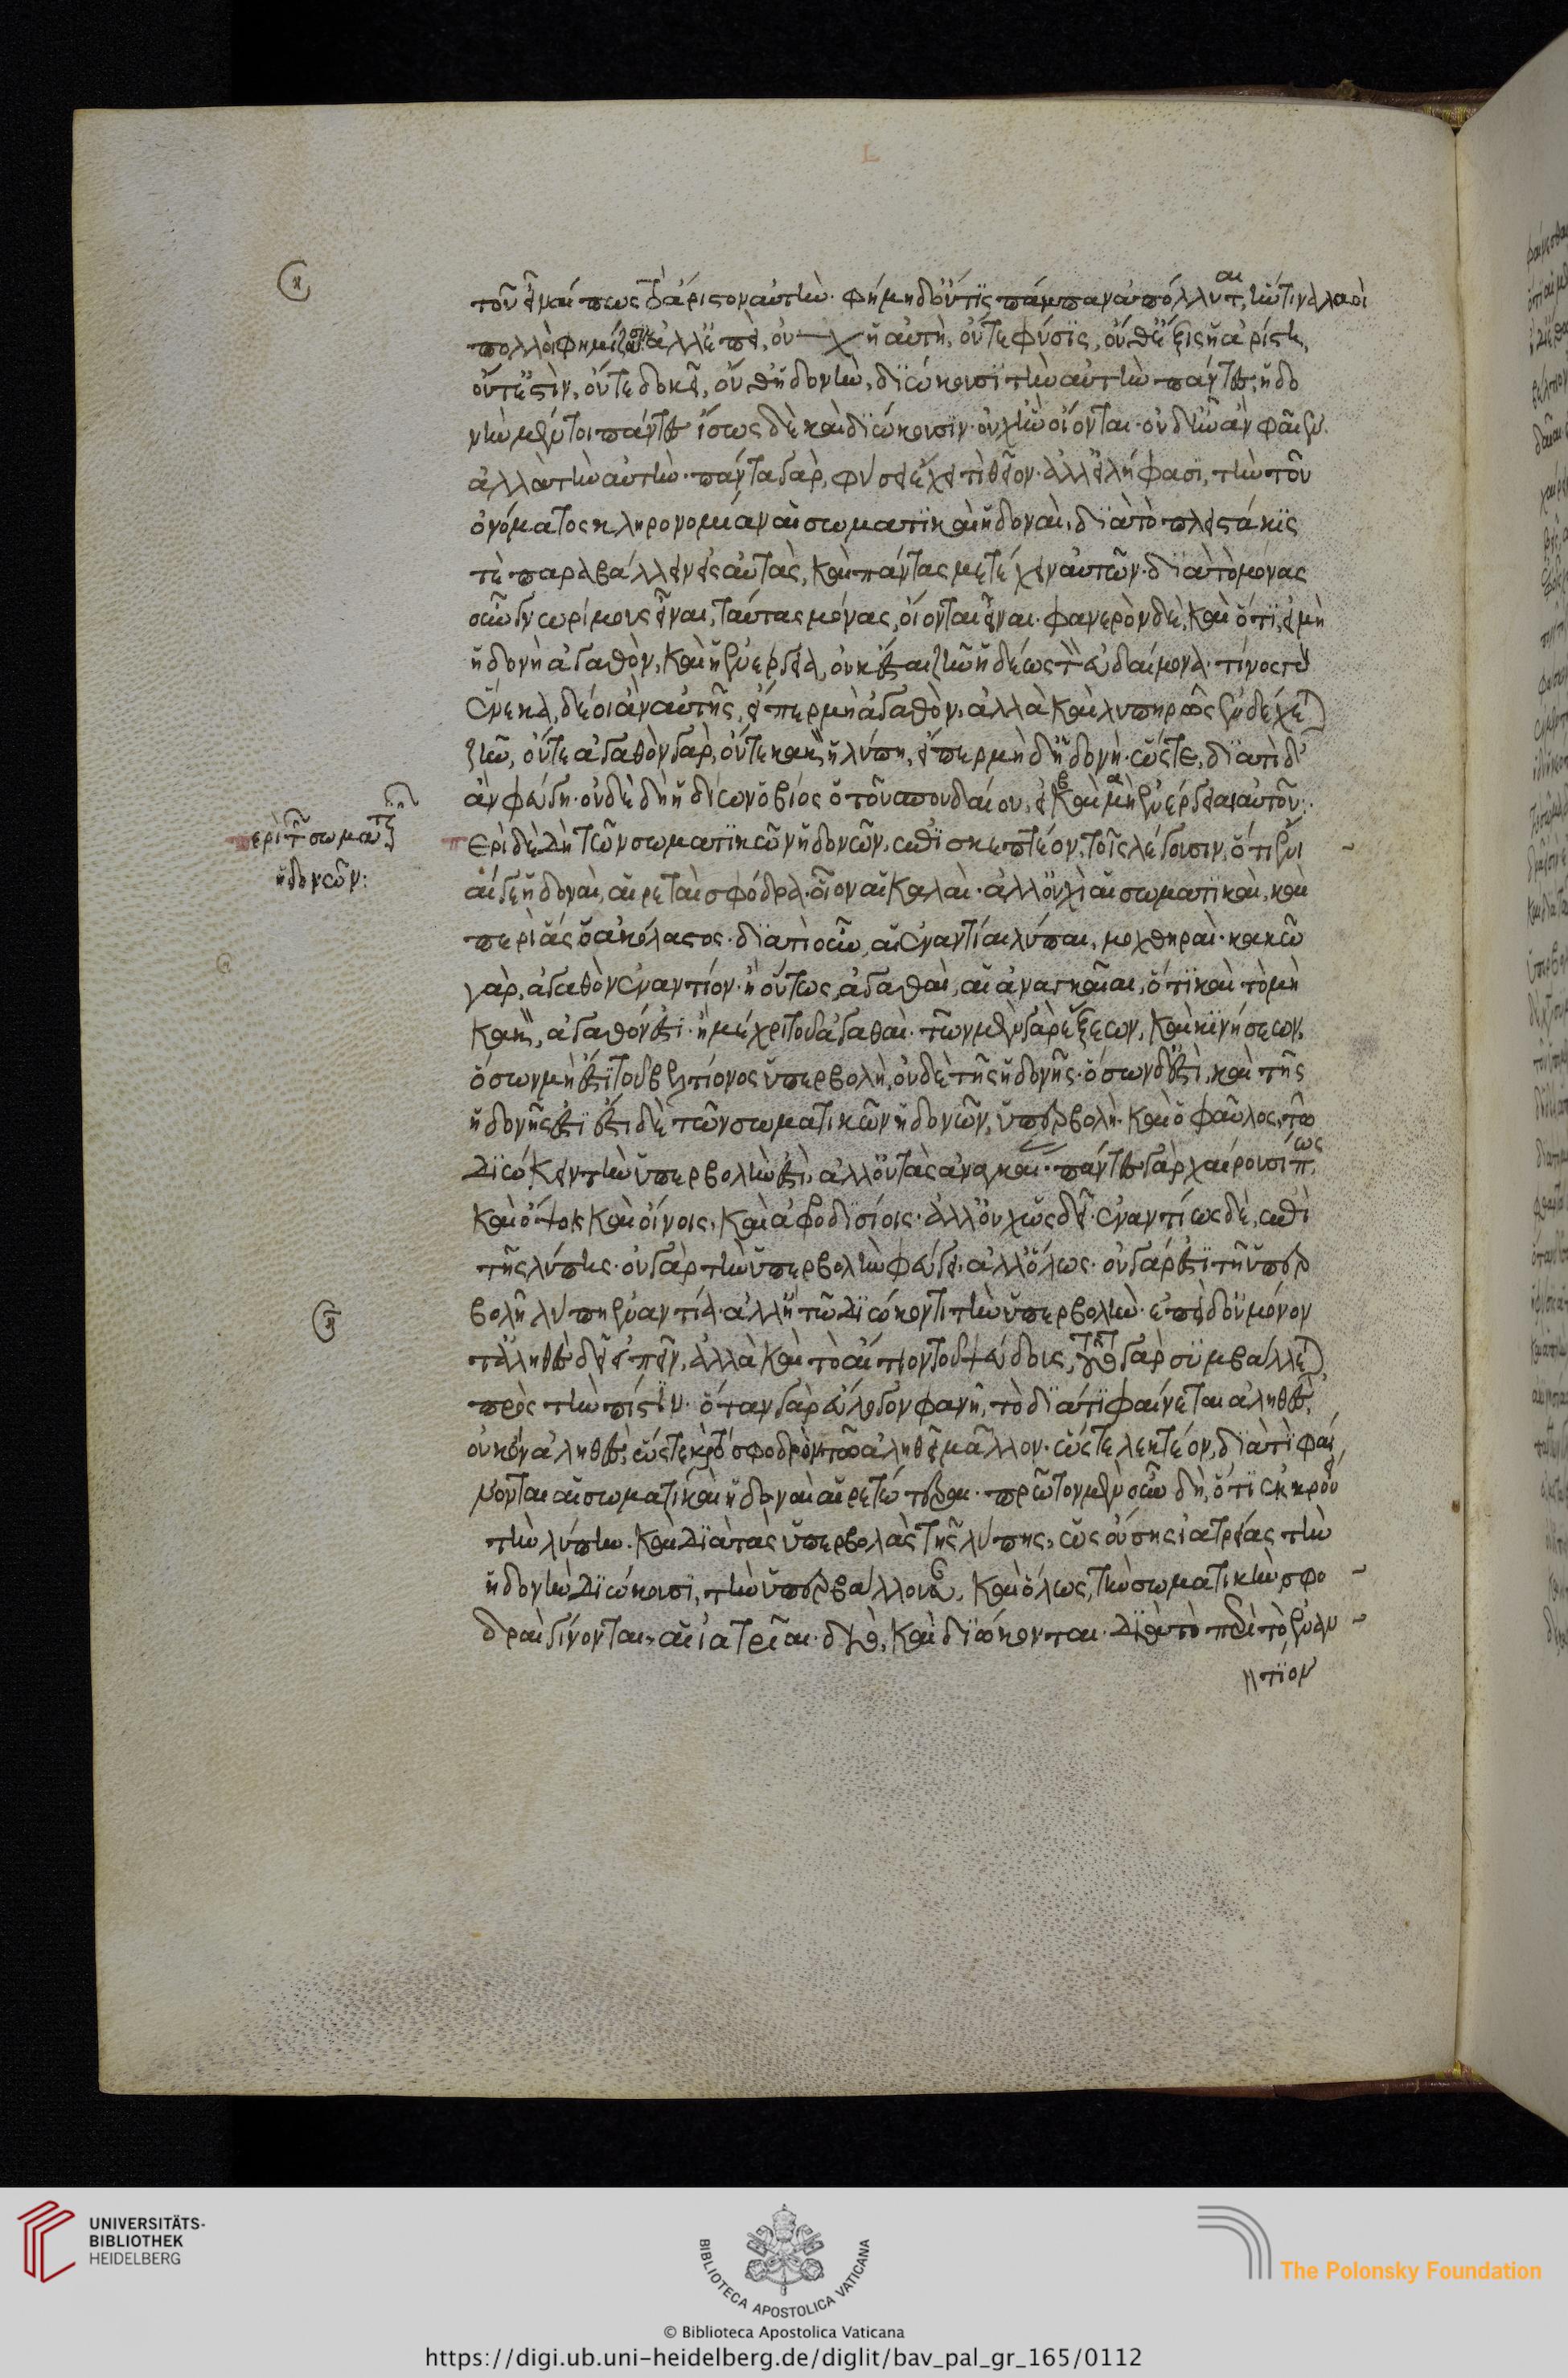 τοῦ εἶναί πως τὸ ἄριστον αὐτήν· φήμη δ' οὔτις πάμπαν ἀπόλλυται, ἥντινα λαοὶ
πολλοὶ φημίζουσιν· ἀλλ' ἐπεὶ, οὐχ ἡ αὐτὴ, οὔτε φύσις, οὔθ' ἕξις ἡ ἀρίστη,
οὔτ' ἐστὶν, οὔτε δοκεῖ, οὔθ' ἡδονὴν, διώκουσι τὴν αὐτὴν πάντες, ἡδο
νὴν μέντοι πάντες ἴσως δὲ καὶ διώκουσιν· οὐχ ἣν οἴονται· οὐδ' ἣν ἂν φαῖεν.
ἀλλὰ τὴν αὐτήν· πάντα γὰρ, φύσει ἔχει τὶ θεῖον· ἀλλ' εἰλήφασι, τὴν τοῦ
ὀνόματος κληρονομίαν αἱ σωματικαὶ ἡδοναὶ, διὰ τὸ πλειστάκις
τὲ παραβάλλειν εἰς αὐτὰς, καὶ πάντας μετέχειν αὐτῶν· διὰ τὸ μόνας
οὖν γνωρίμους εἶναι, ταύτας μόνας, οἴονται εἶναι· φανερὸν δὲ, καὶ ὅτι, εἰ μὴ
ἡδονὴ ἀγαθὸν, καὶ ἡ ἐνέργεια, οὐκ ἔσται ζῆν ἡδέως τὸν εὐδαίμονα· τίνος γὰρ
ἕνεκα, δέοι ἂν αὐτῆς, εἴπερ μὴ ἀγαθὸν, ἀλλὰ καὶ λυπηρῶς ἐνδέχεται
ζῆν, οὔτε ἀγαθὸν γὰρ, οὔτε κακὸν ἡ λύπη, εἴπερ μὴ δ' ἡδονή· ὥστε, διατί δ'
ἂν φεύγῃ· οὐδὲ δὴ ἡδίων ὁ βίος ὁ τοῦ σπουδαίου, εἰ καὶ μὴ αἱ ἐνέργειαι αὐτοῦ:·
Περὶ δὲ δὴ τῶν σωματικῶν ἡδονῶν, ἐπισκεπτέον, τοῖς λέγουσιν, ὅτι ἔνι
αί γε ἡδοναὶ, αἱρεταὶ σφόδρα· οἷον αἱ καλαί· ἀλλ' οὐχὶ αἱ σωματικαὶ, καὶ
περὶ ἃς ὁ ἀκόλαστος· διατί οὖν, αἱ ἐναντίαι λύπαι, μοχθηραί· κακῷ
γὰρ, ἀγαθὸν ἐναντίον· ἢ οὕτως, ἀγαθαὶ, αἱ ἀναγκαῖαι, ὅτι καὶ τὸ μὴ
κακὸν, ἀγαθόν ἐστι· ἢ μέχρι του ἀγαθαί· τῶν μὲν γὰρ ἕξεων, καὶ κινήσεων,
ὅσων μὴ ἔστι τοῦ βελτίονος ὑπερβολὴ, οὐδὲ τῆς ἡδονῆς· ὅσων δ' ἔστι, καὶ τῆς
ἡδονῆς ἔστι ἔστι δὲ τῶν σωματικῶν ἡδονῶν, ὑπερβολή· καὶ ὁ φαῦλος, τῷ
διώκειν τὴν ὑπερβολὴν ἐστὶ, ἀλλ' οὐ τὰς ἀναγκαί· πάντες γὰρ χαίρουσί πως
καὶ ὄψοις καὶ οἴνοις, καὶ ἀφροδισίοις· ἀλλ' οὐχ ὡς δεῖ· ἐναντίως δὲ, ἐπὶ
τῆς λύπης· οὐ γὰρ τὴν ὑπερβολὴν φεύγει, ἀλλ' ὅλως· οὐ γάρ ἐστι τῇ ὑπερ
βολῇ λύπη ἐναντία· ἀλλ' ἢ τῷ διώκοντι τὴν ὑπερβολήν· ἐπεὶ δ' οὐ μόνον
τἀληθὲς δεῖ εἰπεῖν, ἀλλὰ καὶ τὸ αἴτιον τοῦ ψεύδους, τοῦτο γὰρ συμβάλλεται
πρὸς τὴν πίστιν· ὅταν γὰρ εὔλογον φανῇ, τὸ διατί φαίνεται ἀληθὲς,
οὐκ ὂν ἀληθές,
ὥστε λεκτέον, διατί φαί
νονται αἱ σωματικαὶ ἡδοναὶ αἱρετώτεραι· πρῶτον μὲν οὖν δὴ, ὅτι ἐκκρού
τὴν λύπην· καὶ διὰ τὰς ὑπερβολὰς τῆς λύπης, ὡς οὔσης ἰατρείας τὴν
ἡδονὴν διώκουσι, τὴν ὑπερβάλλουσαν, καὶ ὅλως, τὴν σωματικὴν, σφο
δραὶ γίνονται, αἱ ἰατρεῖαι· διὸ, καὶ διώκονται· διὰ τὸ παρὰ τὸ ἐναν
τίον
περὶ τῶν σωματικῶν
ἡδονῶν:
UNIVERSITÄTS-
BIBLIOTHEK
HEIDELBERG
BIBLIOTECA APOSTOLICA VATICANA
The Polonsky Foundation
© Biblioteca Apostolica Vaticana
https://digi.ub.uni-heidelberg.de/diglit/bav_pal_gr_165/0112